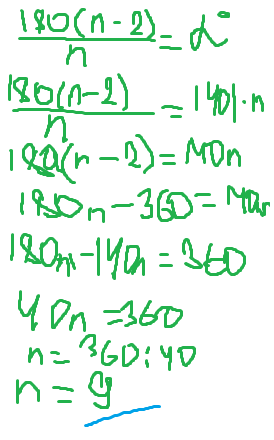 180(n-2)/n = α°
180(n-2)/n = 140|·n
180(n-2) = 140n
180n - 360 = 140n
180n - 140n = 360
40n = 360
n = 360 : 40
n = 9